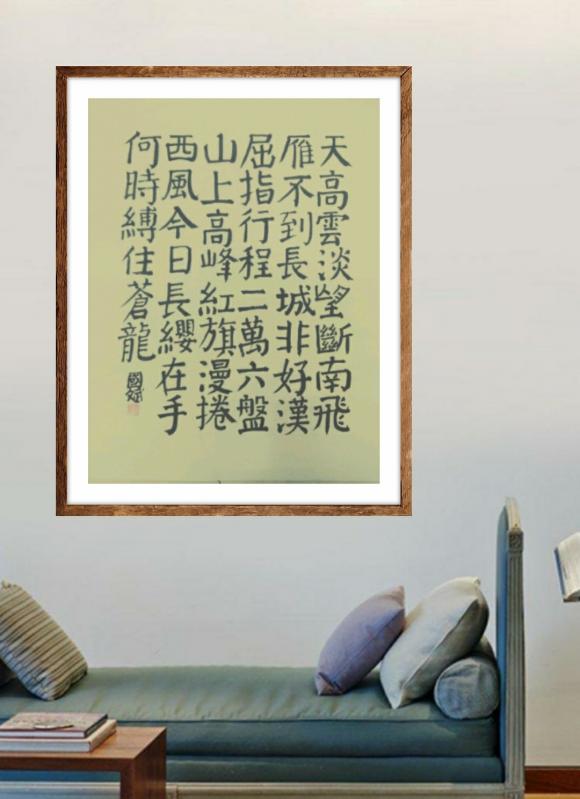 天高雲淡望斷南飛
雁不到長城非好漢
屈指行程二萬六盤
山上高峰紅旗漫捲
西風今日長纓在手
何時縛住蒼龍
國斌